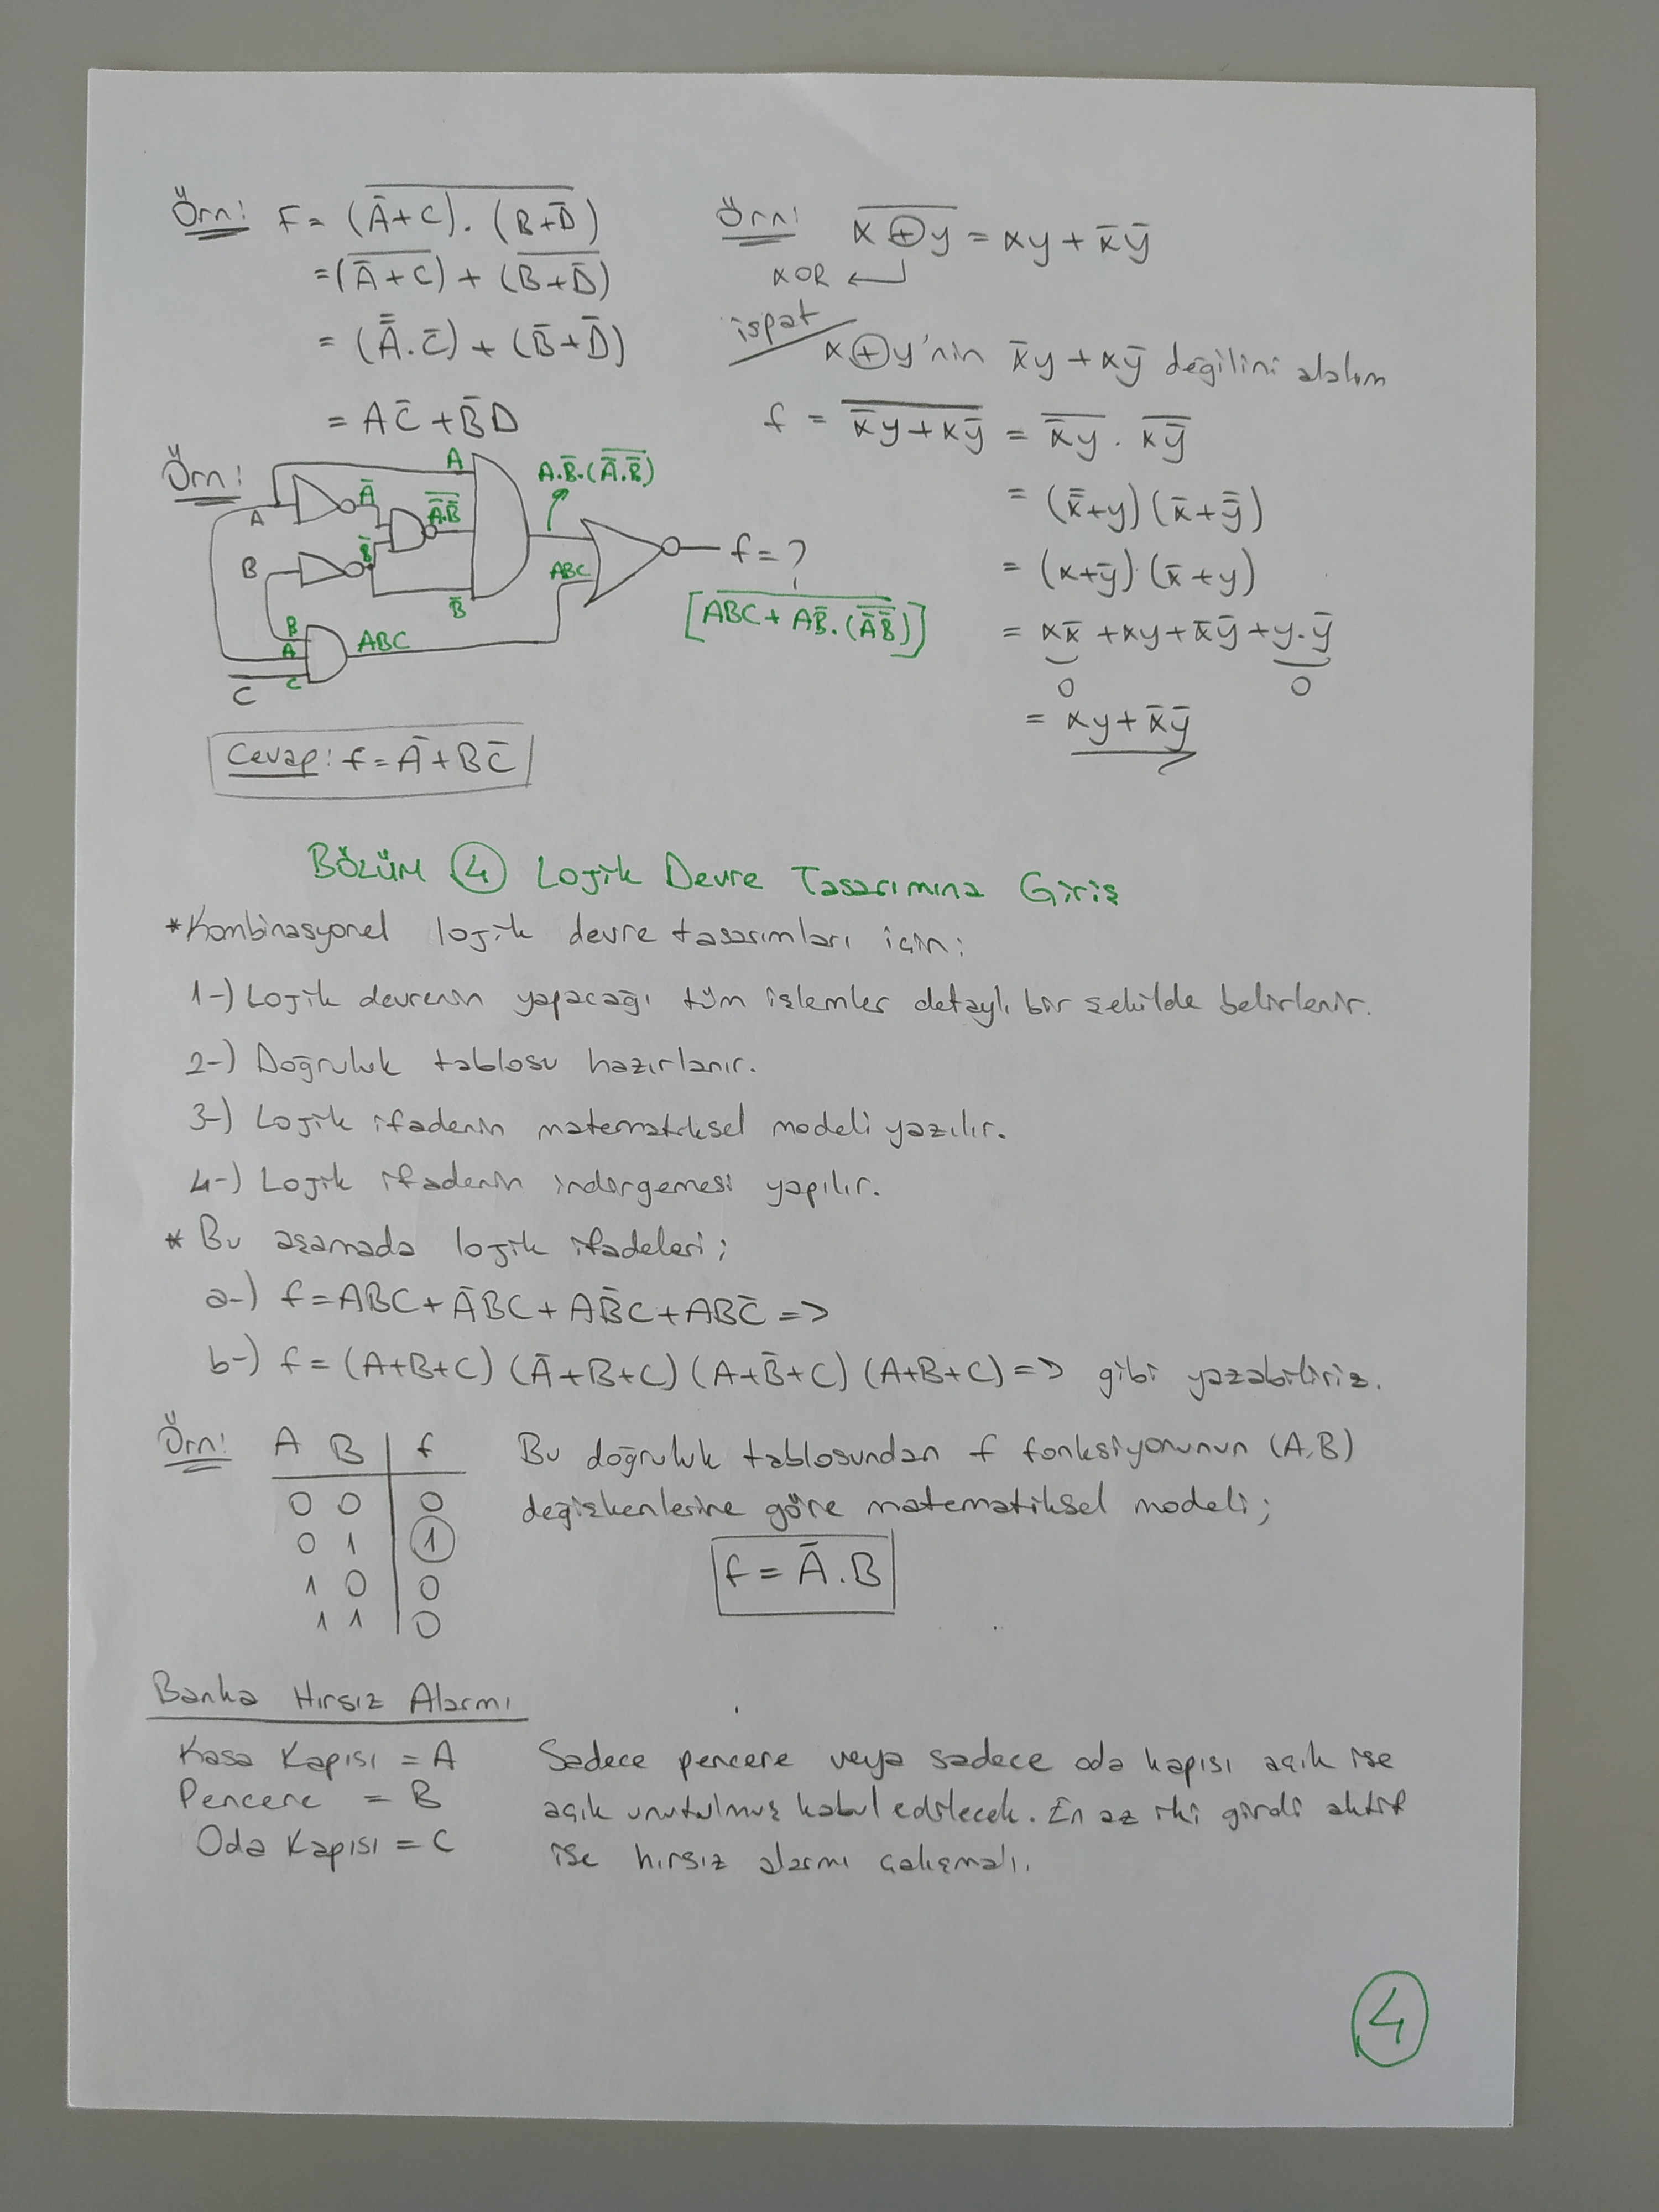 Örn: F = \overline{(Ā+C).(B+D̄)}
= \overline{(Ā+C)} + \overline{(B+D̄)}
= (A̿.C̄) + (B̄+D̿)
= AC̄ + B̄D
Örn: \overline{x⊕y} = xy + x̄ȳ
XOR
ispat x⊕y'nin x̄y + xȳ değilini alalım
f = \overline{x̄y + xȳ} = \overline{x̄y} . \overline{xȳ}
= (x̿+ȳ)(x̄+y̿)
= (x+ȳ)(x̄+y)
= xx̄ + xy + x̄ȳ + y.ȳ
0 0
= xy + x̄ȳ
Örn:
A Ā A A.B̄.(\overline{Ā.B̄})
B B̄ \overline{Ā.B̄} B̄
B A C
C ABC ABC f=?
[\overline{ABC + AB̄.(\overline{ĀB̄})}]
Cevap: f = Ā + BC̄
BÖLÜM 4 Lojik Devre Tasarımına Giriş
*Kombinasyonel lojik devre tasarımları için;
1-) Lojik devrenin yapacağı tüm işlemler detaylı bir şekilde belirlenir.
2-) Doğruluk tablosu hazırlanır.
3-) Lojik ifadenin matematiksel modeli yazılır.
4-) Lojik ifadenin indirgemesi yapılır.
* Bu aşamada lojik ifadeleri;
a-) f = ABC + ĀBC + AB̄C + ABC̄ =>
b-) f = (A+B+C)(Ā+B+C)(A+B̄+C)(A+B+C) => gibi yazabiliriz.
Örn: A B f
0 0 0
0 1 1
1 0 0
1 1 0
Bu doğruluk tablosundan f fonksiyonunun (A,B)
değişkenlerine göre matematiksel modeli;
f = Ā.B
Banka Hırsız Alarmı
Kasa Kapısı = A
Pencere = B
Oda Kapısı = C
Sadece pencere veya sadece oda kapısı açık ise
açık unutulmuş kabul edilecek. En az iki girdi aktif
ise hırsız alarmı çalışmalı.
4